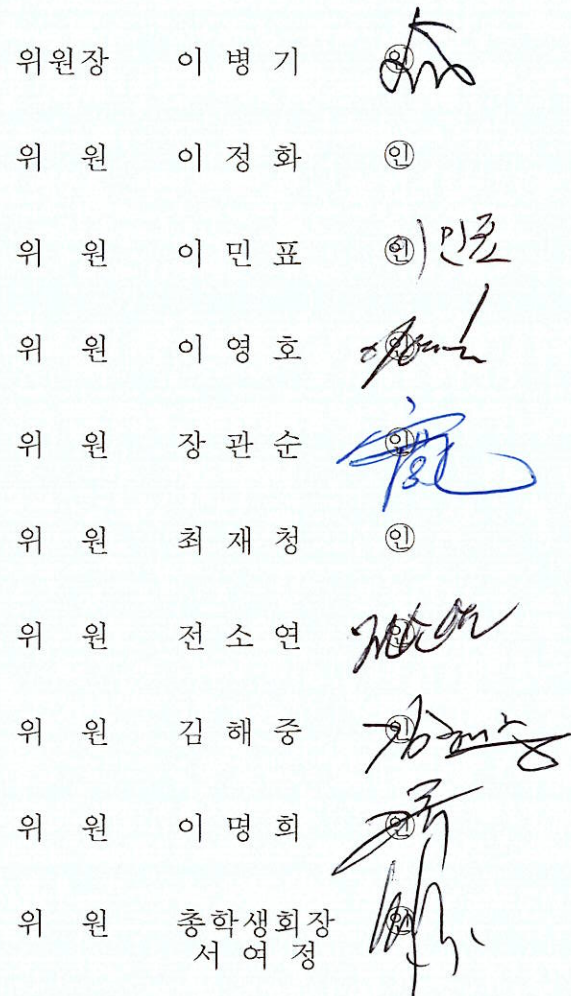 위원장 이 병 기 ㉑인
위 원 이 정 화 ㊞
위 원 이 민 표 ㊞ 이민표
위 원 이 영 호 ㊞
위 원 장 관 순 ㊞
위 원 최 재 청 ㊞
위 원 전 소 연 ㊞
위 원 김 해 중 ㊞
위 원 이 명 희 ㊞
위 원 총학생회장 ㊞
서 여 정